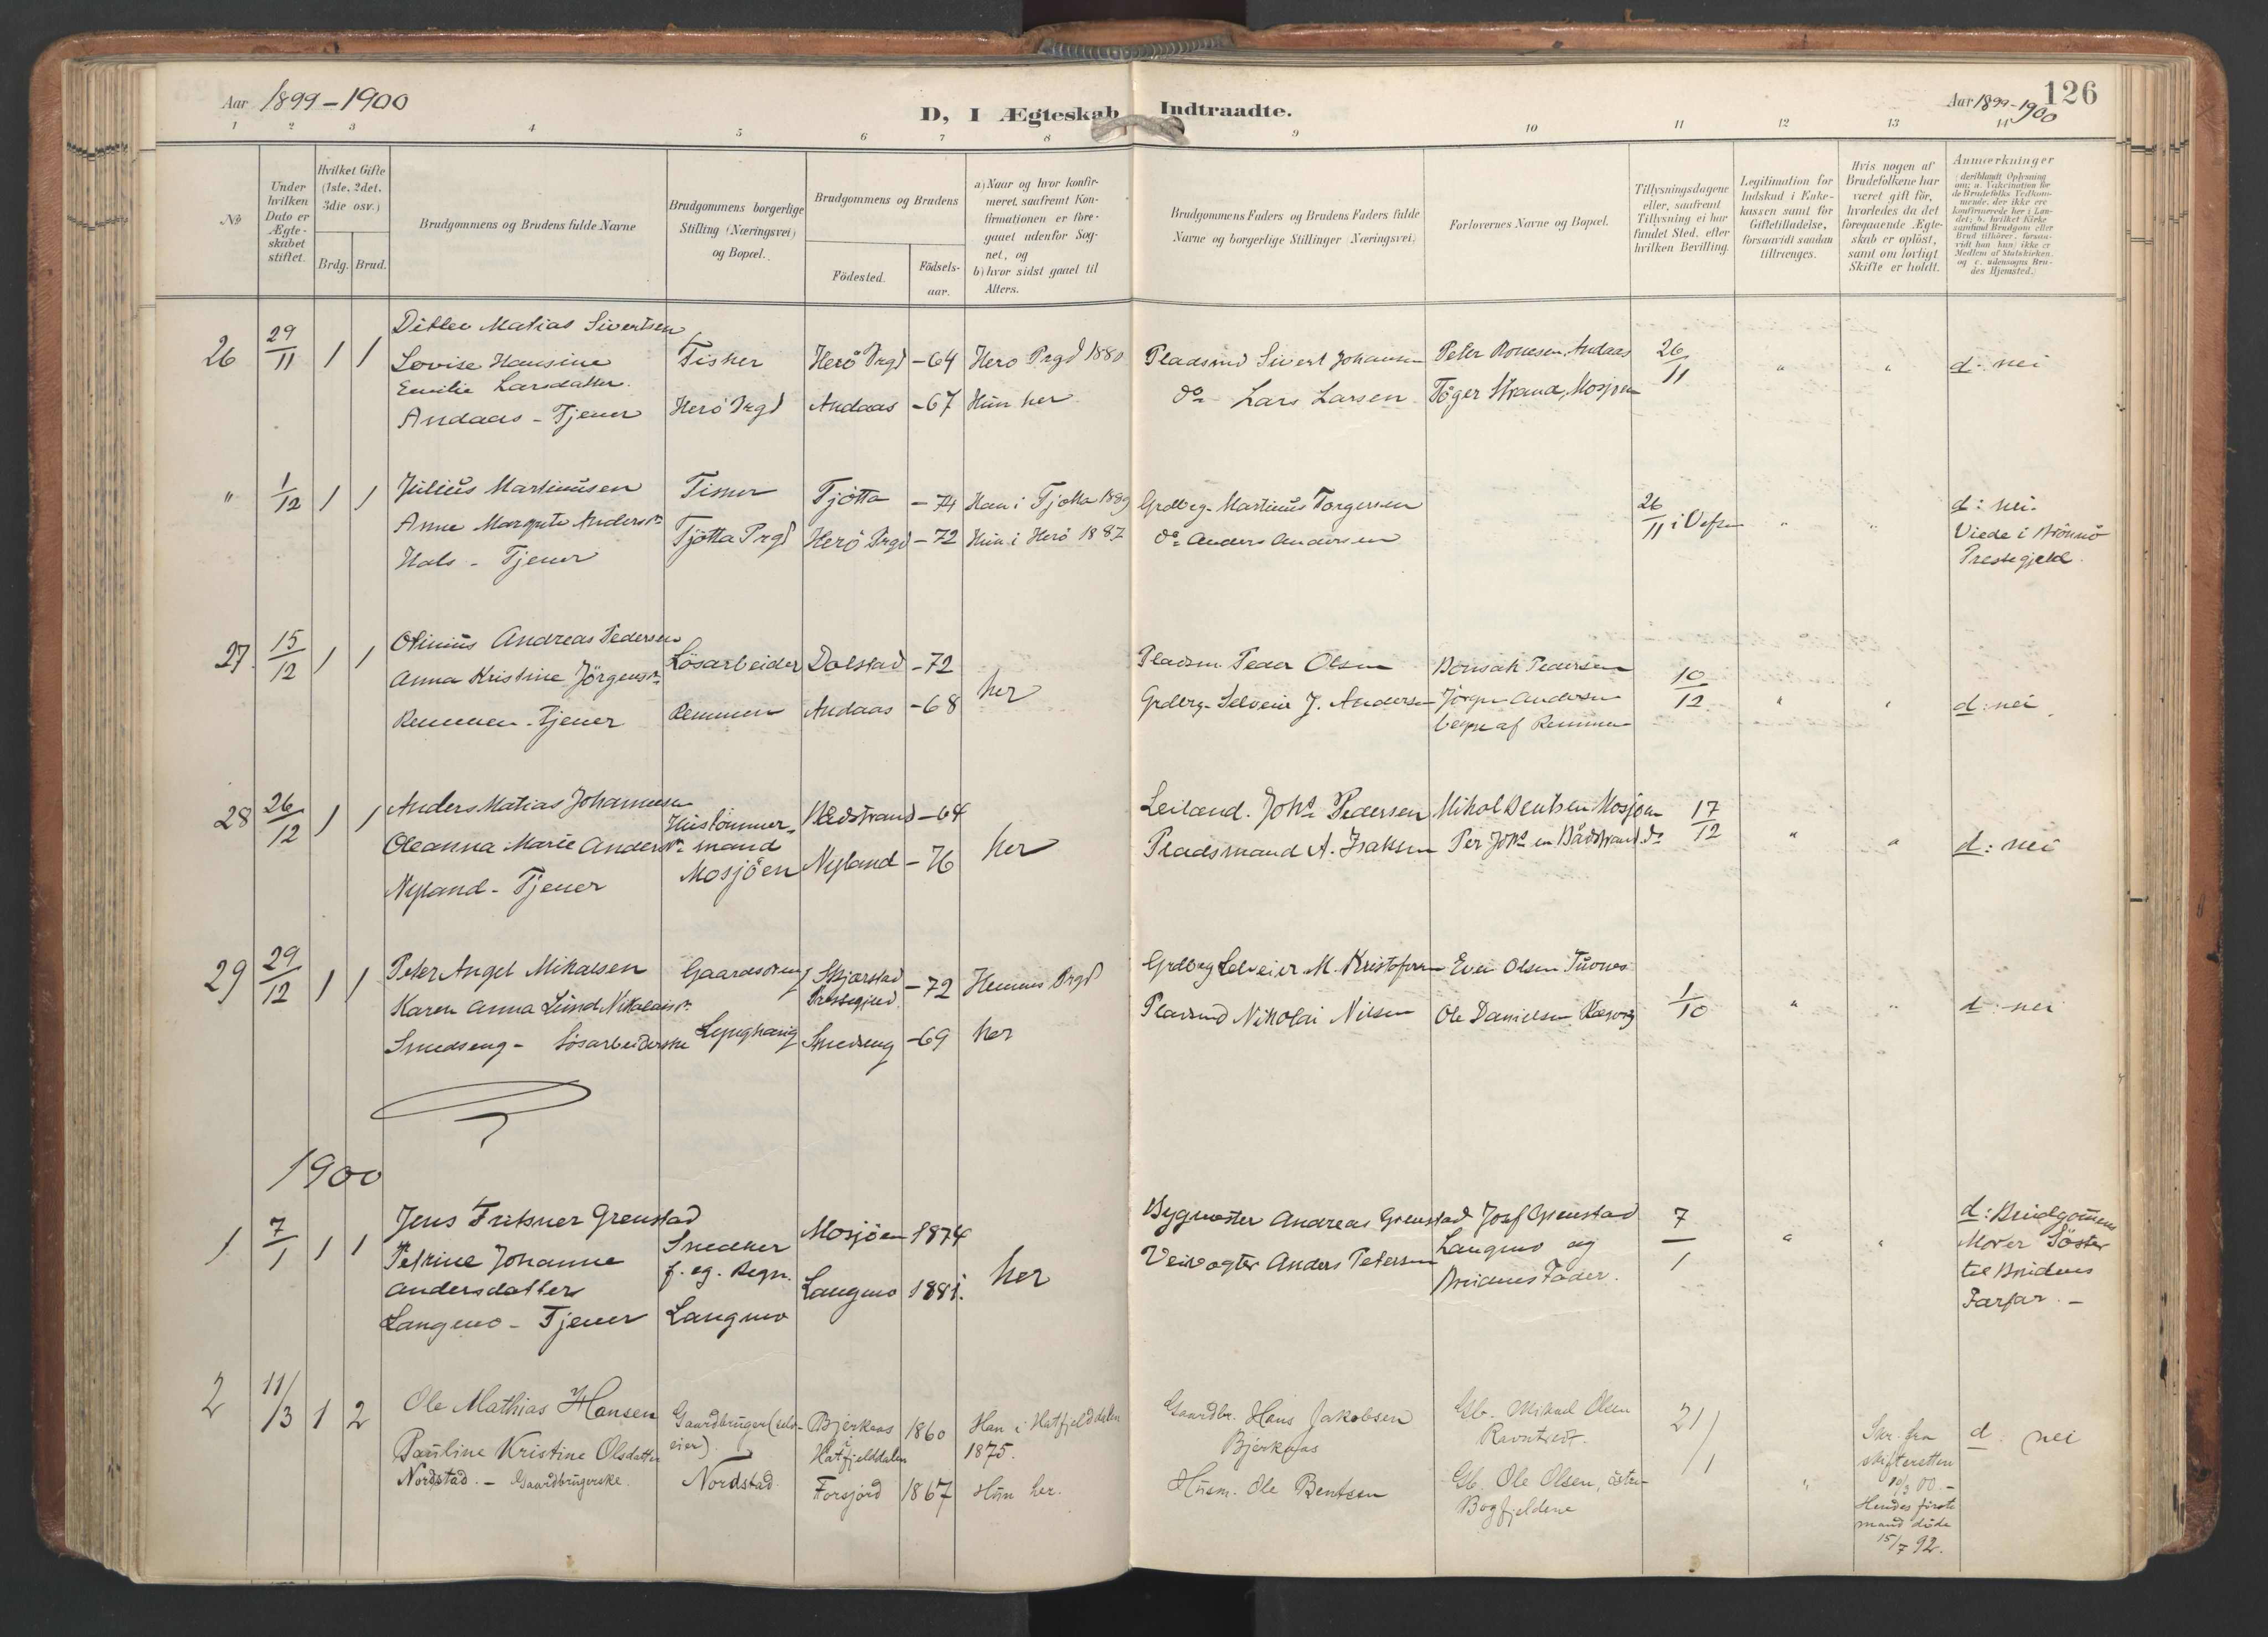 Aar 1899-1900
D, I Ægteskab Indtraadte.
Aar 1899-1900
126
1 2 3 4 5 6 7 8 9 10 11 12 13 14
No
Under hvilken Dato er Ægteskabet stiftet.
Hvilket Gifte (1ste, 2det, 3die osv.)
Brdg. Brud.
Brudgommens og Brudens fulde Navne
Brudgommens borgerlige Stilling (Næringsvei) og Bopæl.
Brudgommens og Brudens
Fødested.
Fødsels-aar.
a) Naar og hvor konfirmeret, saafremt Konfirmationen er foregaaet udenfor Sognet, og
b) hvor sidst gaaet til Alters.
Brudgommens Faders og Brudens Faders fulde Navne og borgerlige Stillinger (Næringsvei)
Forlovernes Navne og Bopæl.
Tillysningsdagene eller, saafremt Tillysning ei har fundet Sted, efter hvilken Bevilling.
Legitimation for Indskud i Enkekassen samt for Giftetilladelse, forsaavidt saadan tiltrænges.
Hvis nogen af Brudefolkene har været gift før, hvorledes da det foregaaende Ægteskab er opløst, samt om lovligt Skifte er holdt.
Anmærkninger
26 29/11 1 1
Ditlev Matias Sivertsen
Lovise Hansine
Emilie Larsdatter
Andaas - Tjener
Fisker
Herö Prgd
Herö Prgd -64 Herö Prgd 1880
Andaas -67 Hun her
Pladsmd Sivert Johansen
do Lars Larsen
Peter Andaas
Töger Strand, Mosjöen
26/11 " " d: nei
" 1/12 1 1
Julius Martinusen
Anne Margrete Andersdr
Hals - Tjener
Fisker
Tjötta Prgd
Tjötta -74 Han i Tjötta 1889
Herö Prgd -72 Hun i Herö 1887
Grdbrg. Martinus Torgersen
do Anders Andersen
26/11 i Vefsn " "
d: nei.
Viede i Brönnö
Prestegjeld.
27. 15/12 1 1
Olinius Andreas Pedersen
Anna Kristine Jörgensdr
Remmen - Tjener
Lösarbeider
Remmen
Dolstad -72
Andaas -68
her
Pladsm. Peder Olsen
Grdbrg. Selveier J. Andersen
Pedersen
Jörgen Andersen
begge af Remmen
10/12 " " d: nei
28 26/12 1 1
Anders Matias Johannesen
Oleanna Marie Andersdr
Nyland - Tjener
Hustömmer-
mand
Mosjöen
-64
Nyland -76
her
Leiland. Johs Pedersen
Pladsmand A. Isaksen
Mikal Bentsen Mosjöen
17/12 " " d: nei
29 29/12 1 1
Peter Angel Mikalsen
Karen Anna Lund Nikolaisdr
Smedseng - Lösarbeiderske
Prestegjeld -72 Hemnes Prgd
Smedseng -69 her
Grdbrg Selveier M. Kristofersen
Pladsmd Nikolai Nilsen
Olsen
Ole Danielsen
1/10 " " d: nei
1900
1 7/1 1 1
Jens Fritsner Grenstad
Petrine Johanne
Andersdatter
Langmo - Tjener
Snedker
f. eg. Regn.
Langmo
Mosjöen 1874
Langmo 1881.
her
Bygmester Andreas Grenstad
Veivogter Anders Petersen
Josef Grenstad
Langmo og
Brudens Fader.
7/1 " "
d: Brudgommens
Moder Söster
til Brudens
Farfar. -
2 11/3 1 2
Ole Mathias Hansen
Pauline Kristine Olsdatter
Nordstad. - Gaardbrugerske.
Gaardbruger (selv-
eier).
Nordstad.
Bjerkaas 1860
Hatfjelddalen
Forsjord 1867
Han i Hatfjelddalen
1875.
Hun her.
Gaardbr. Hans Jakobsen
Bjerkaas
Husm. Ole Bentsen
Gb. Mikael Olsen
Gb. Ole Olsen, östre
Bogfjeldene
21/1 "
Skr. fra
skifteretten
10/3 00. -
Hendes förste
mand döde
15/7 92.
d: nei